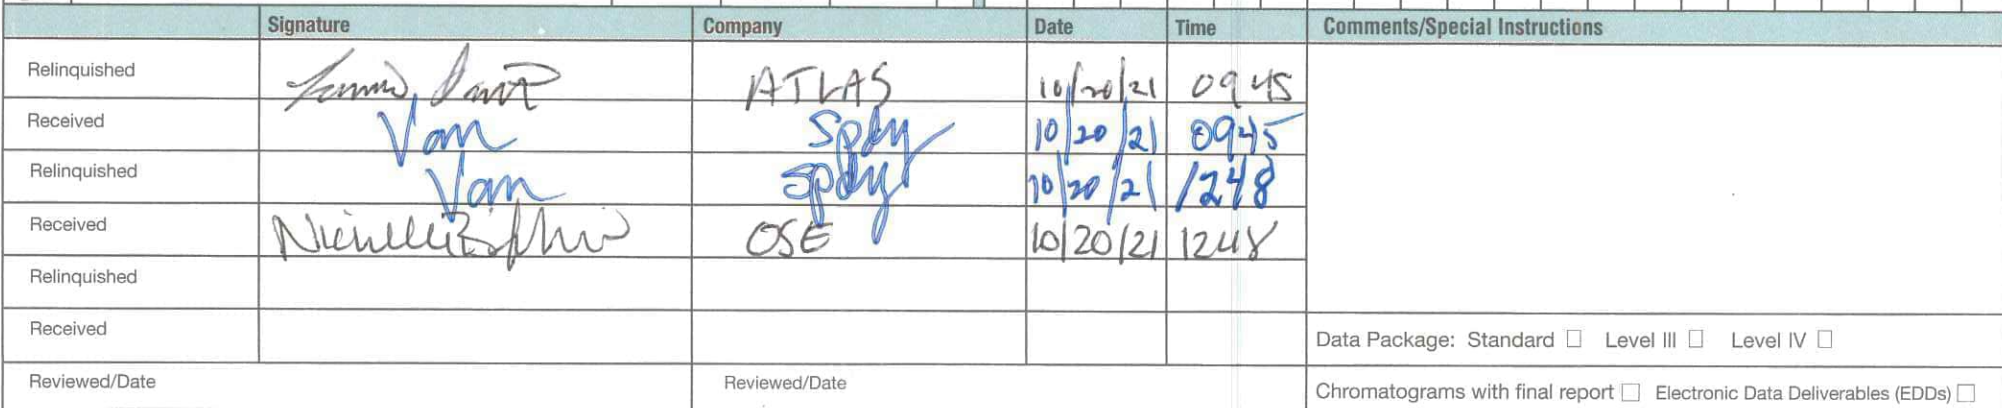 Signature Company Date Time Comments/Special Instructions
Relinquished ATLAS 10/20/21 0945
Received Van Spdy 10/20/21 0945
Relinquished Van Spdy 10/20/21 1248
Received OSE 10/20/21 1248
Relinquished
Received
Data Package: Standard ☐ Level III ☐ Level IV ☐
Reviewed/Date Reviewed/Date
Chromatograms with final report ☐ Electronic Data Deliverables (EDDs) ☐